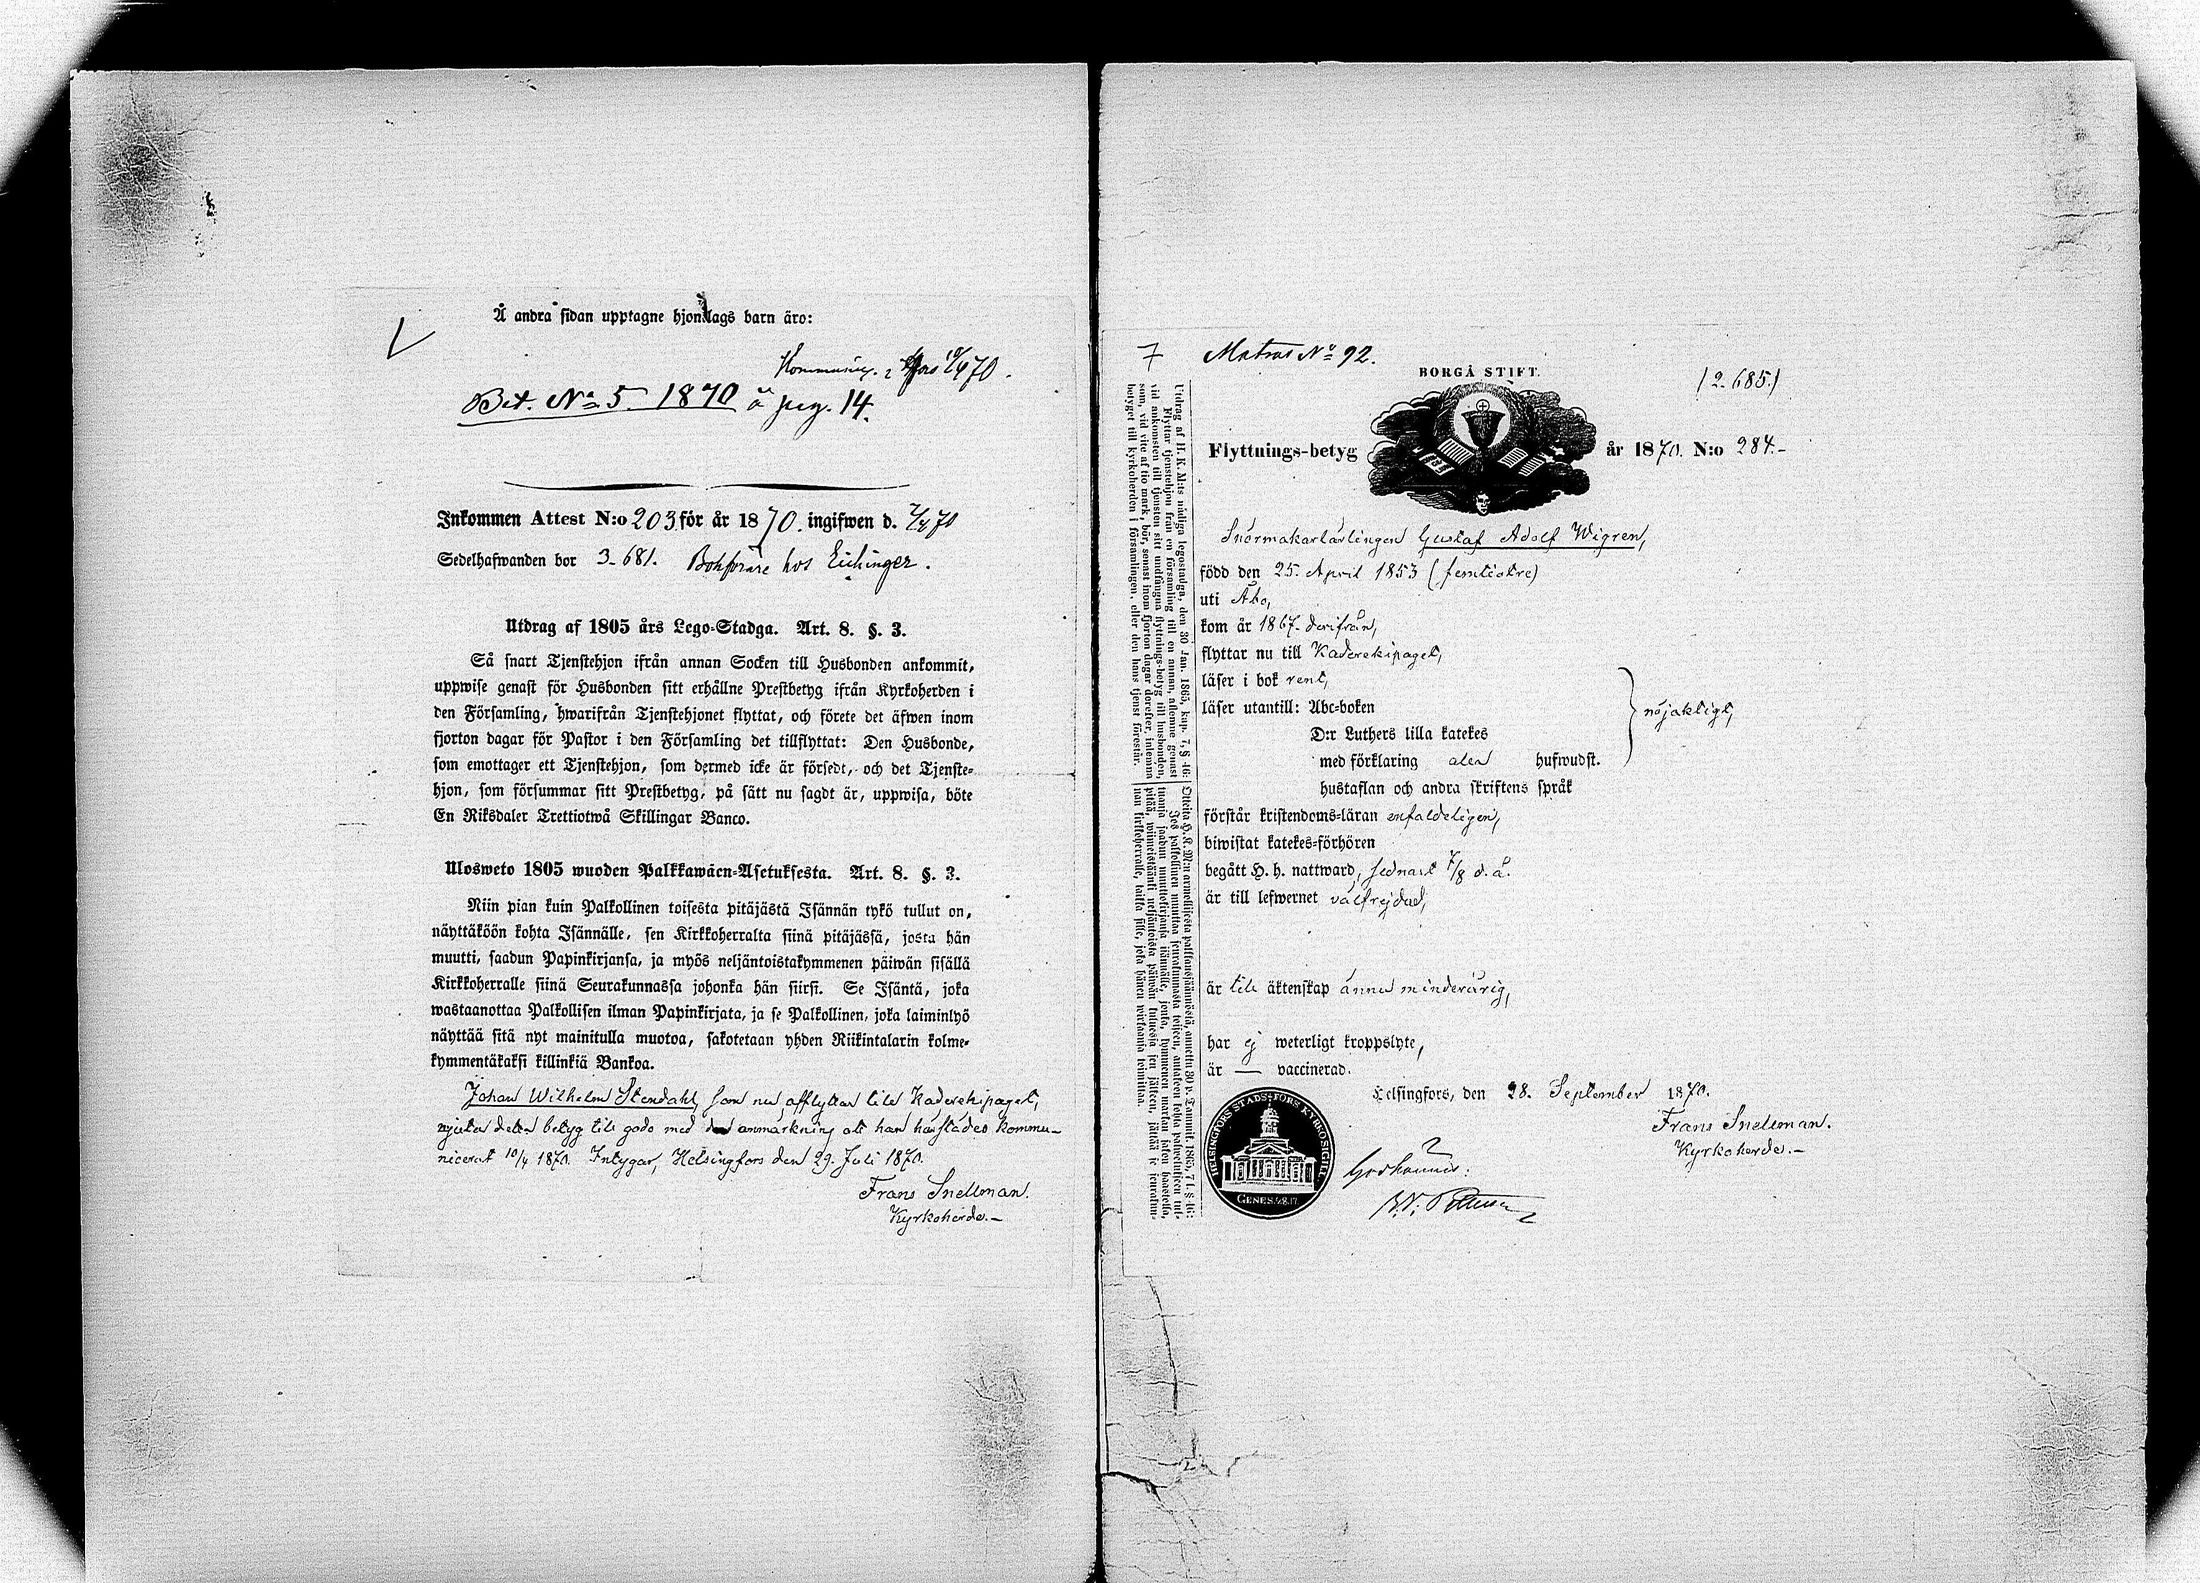 Å andra sidan upptagne hjonslags barn äro:
Bet. No 5. 1870 å pag. 14.
Inkommen Attest N:o 203 för år 1870. ingifwen d. 7/4 70
Sedelhafwanden bor 3-681. Bokförare hos Eichinger.
Utdrag af 1805 års Lego-Stadga. Art. 8. §. 3.
Så snart Tjenstehjon ifrån annan Socken till Husbonden ankommit,
uppwise genast för Husbonden sitt erhållne Prestbetyg ifrån Kyrkoherden i
den Församling, hwarifrån Tjenstehjonet flyttat, och förete det äfwen inom
fjorton dagar för Pastor i den Församling det tillflyttat: Den Husbonde,
som emottager ett Tjenstehjon, som dermed icke är försedt, och det Tjenste-
hjon, som försummar sitt Prestbetyg, på sätt nu sagdt är, uppwisa, böte
En Riksdaler Trettiotwå Skillingar Banco.
Ulosweto 1805 wuoden Palkkawäen-Asetuksesta. Art. 8. §. 3.
Niin pian kuin Palkollinen toisesta pitäjästä Isännän tykö tullut on,
näyttäköön kohta Isännälle, sen Kirkkoherralta siinä pitäjässä, josta hän
muutti, saadun Papinkirjansa, ja myös neljäntoistakymmenen päiwän sisällä
Kirkkoherralle siinä Seurakunnassa johonka hän siirsi. Se Isäntä, joka
wastaanottaa Palkollisen ilman Papinkirjata, ja se Palkollinen, joka laiminlyö
näyttää sitä nyt mainitulla muotoa, sakotetaan yhden Riikintalarin kolme-
kymmentäkaksi killinkiä Bankoa.
Johan Wilhelm Stendahl, som nu afflyttar till Kaderekipaget,
njuter detta betyg till godo med den anmärkning att han härstädes kommu-
nicerat 10/4 1870. Intygar, Helsingfors den 29. Juli 1870.
Frans Snellman.
Kyrkoherde.-
7 Matras No 92.
(2-685.)
BORGÅ STIFT.
Flyttnings-betyg år 1870. N:o 284.-
Snörmakarlärlingen Gustaf Adolf Wigren,
född den 25. April 1853 (femtiotre)
uti Åbo,
kom år 1867. derifrån,
flyttar nu till Kaderekipaget,
läser i bok rent,
läser utantill: Abc-boken
D:r Luthers lilla katekes
nöjaktigt,
med förklaring alla hufwudst.
hustaflan och andra skriftens språk
förstår kristendoms-läran enfaldeligen,
biwistat katekes-förhören
begått H. h. nattward, sednast 7/8 d. å.
är till lefwernet välfrejdad,
är till äktenskap ännu minderårig,
har ej weterligt kroppslyte,
är — vaccinerad.
Helsingfors, den 28. September 1870.
Frans Snellman.
Kyrkoherde.-
HELSINGFORS STADS-FÖRS. KYRKOSIGILL
GENES. 28.17.
Utdrag af H. K. M:ts nådiga legostadga, den 30 Jan. 1865, kap. 7, § 16:
Flyttar tjenstehjon från en församling till en annan, aflemne genast
vid ankomsten till tjensten sitt undfångna flyttnings-betyg till husbonden,
som, vid vite af tio mark, bör, senast inom fjorton dagar derefter, inlemna
betyget till kyrkoherden i församlingen, eller den hans tjenst förestår.